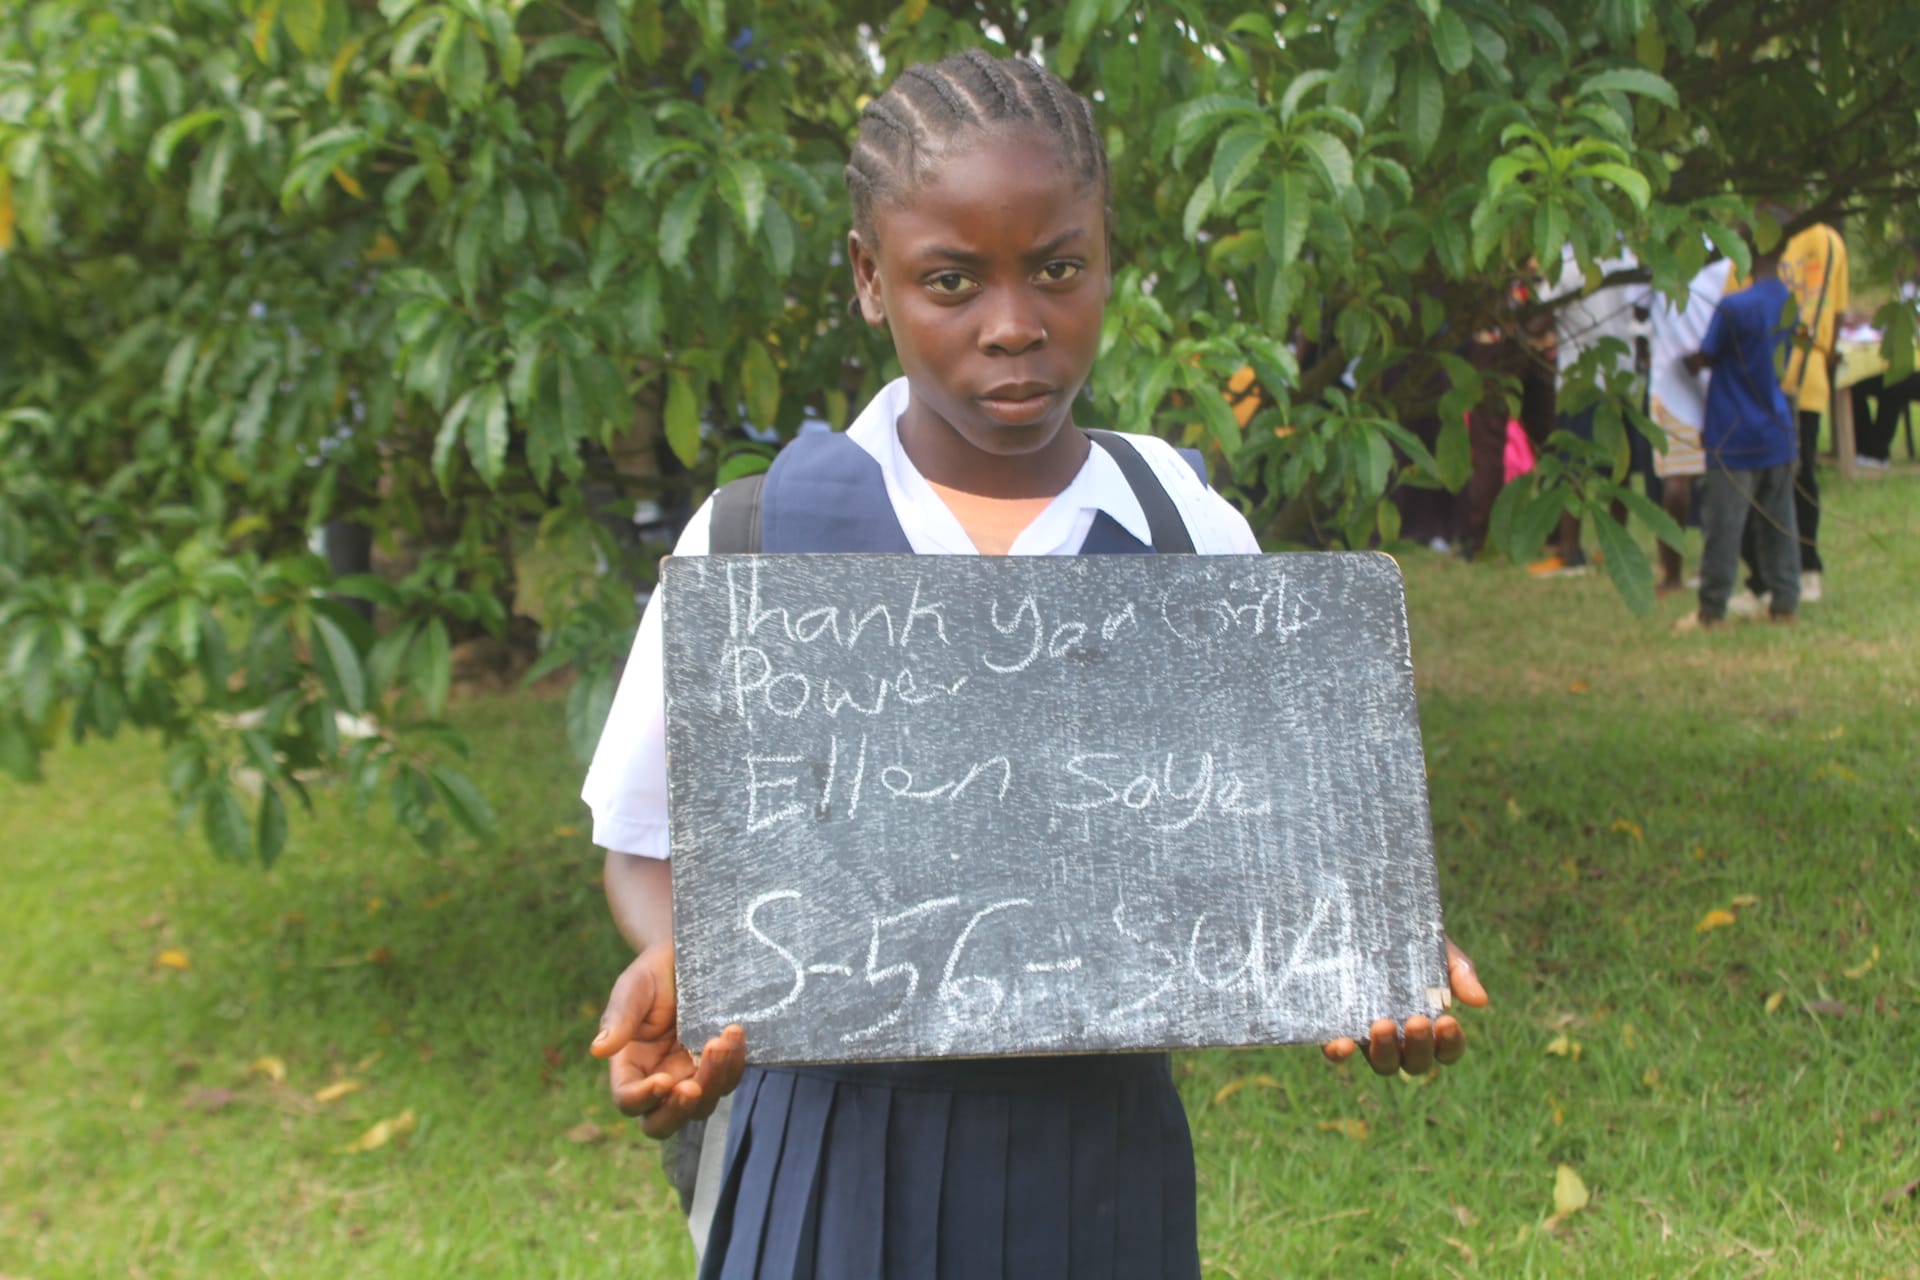 Thank You Girls
Power
Ellen Saye
S-56-SUA